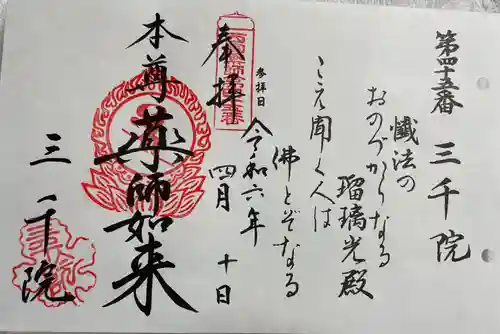 第四十五番 三千院
懺法の
おのづからなる
瑠璃光殿
こえ聞く人は
佛とぞなる
参拝日
令和六年
四月 十日
奉拝
本尊 薬師如来
三千院